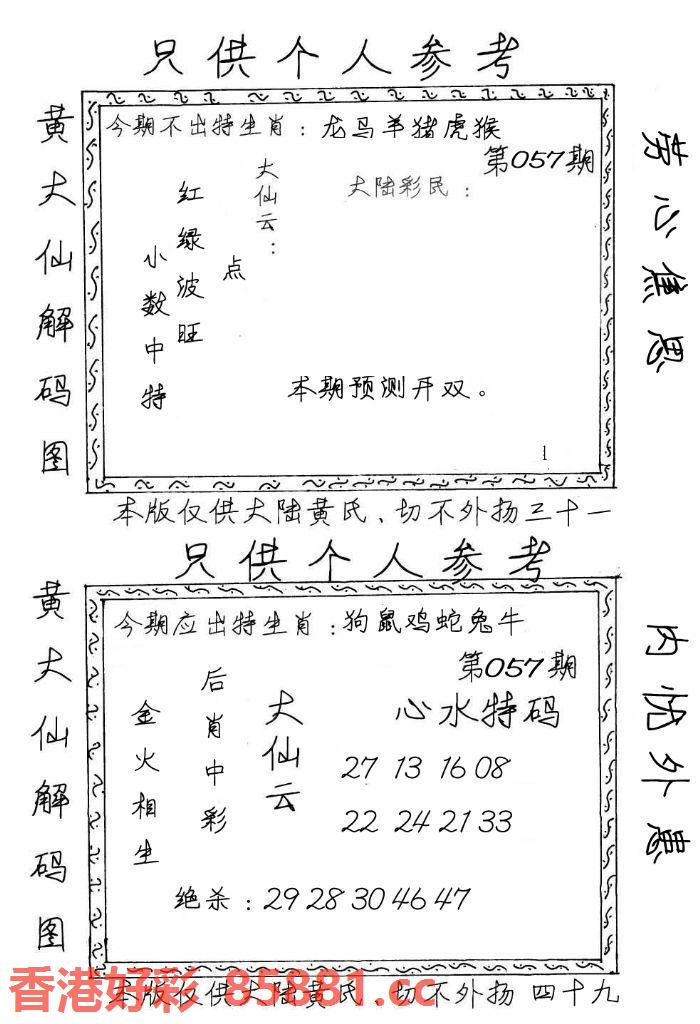 只供个人参考
黄大仙解码图
今期不出特生肖：龙马羊猪虎猴
第057期
大仙云：
大陆彩民：
点
红绿波旺
小数中特
本期预测开双。
1
劳心焦思
本版仅供大陆黄氏、切不外扬三十一
只供个人参考
黄大仙解码图
今期应出特生肖：狗鼠鸡蛇兔牛
第057期
大仙云
后肖中彩
金火相生
心水特码
27 13 16 08
22 24 21 33
绝杀：29 28 30 46 47
内忧外患
本版仅供大陆黄氏、切不外扬 四十九
香港好彩 85881.cc